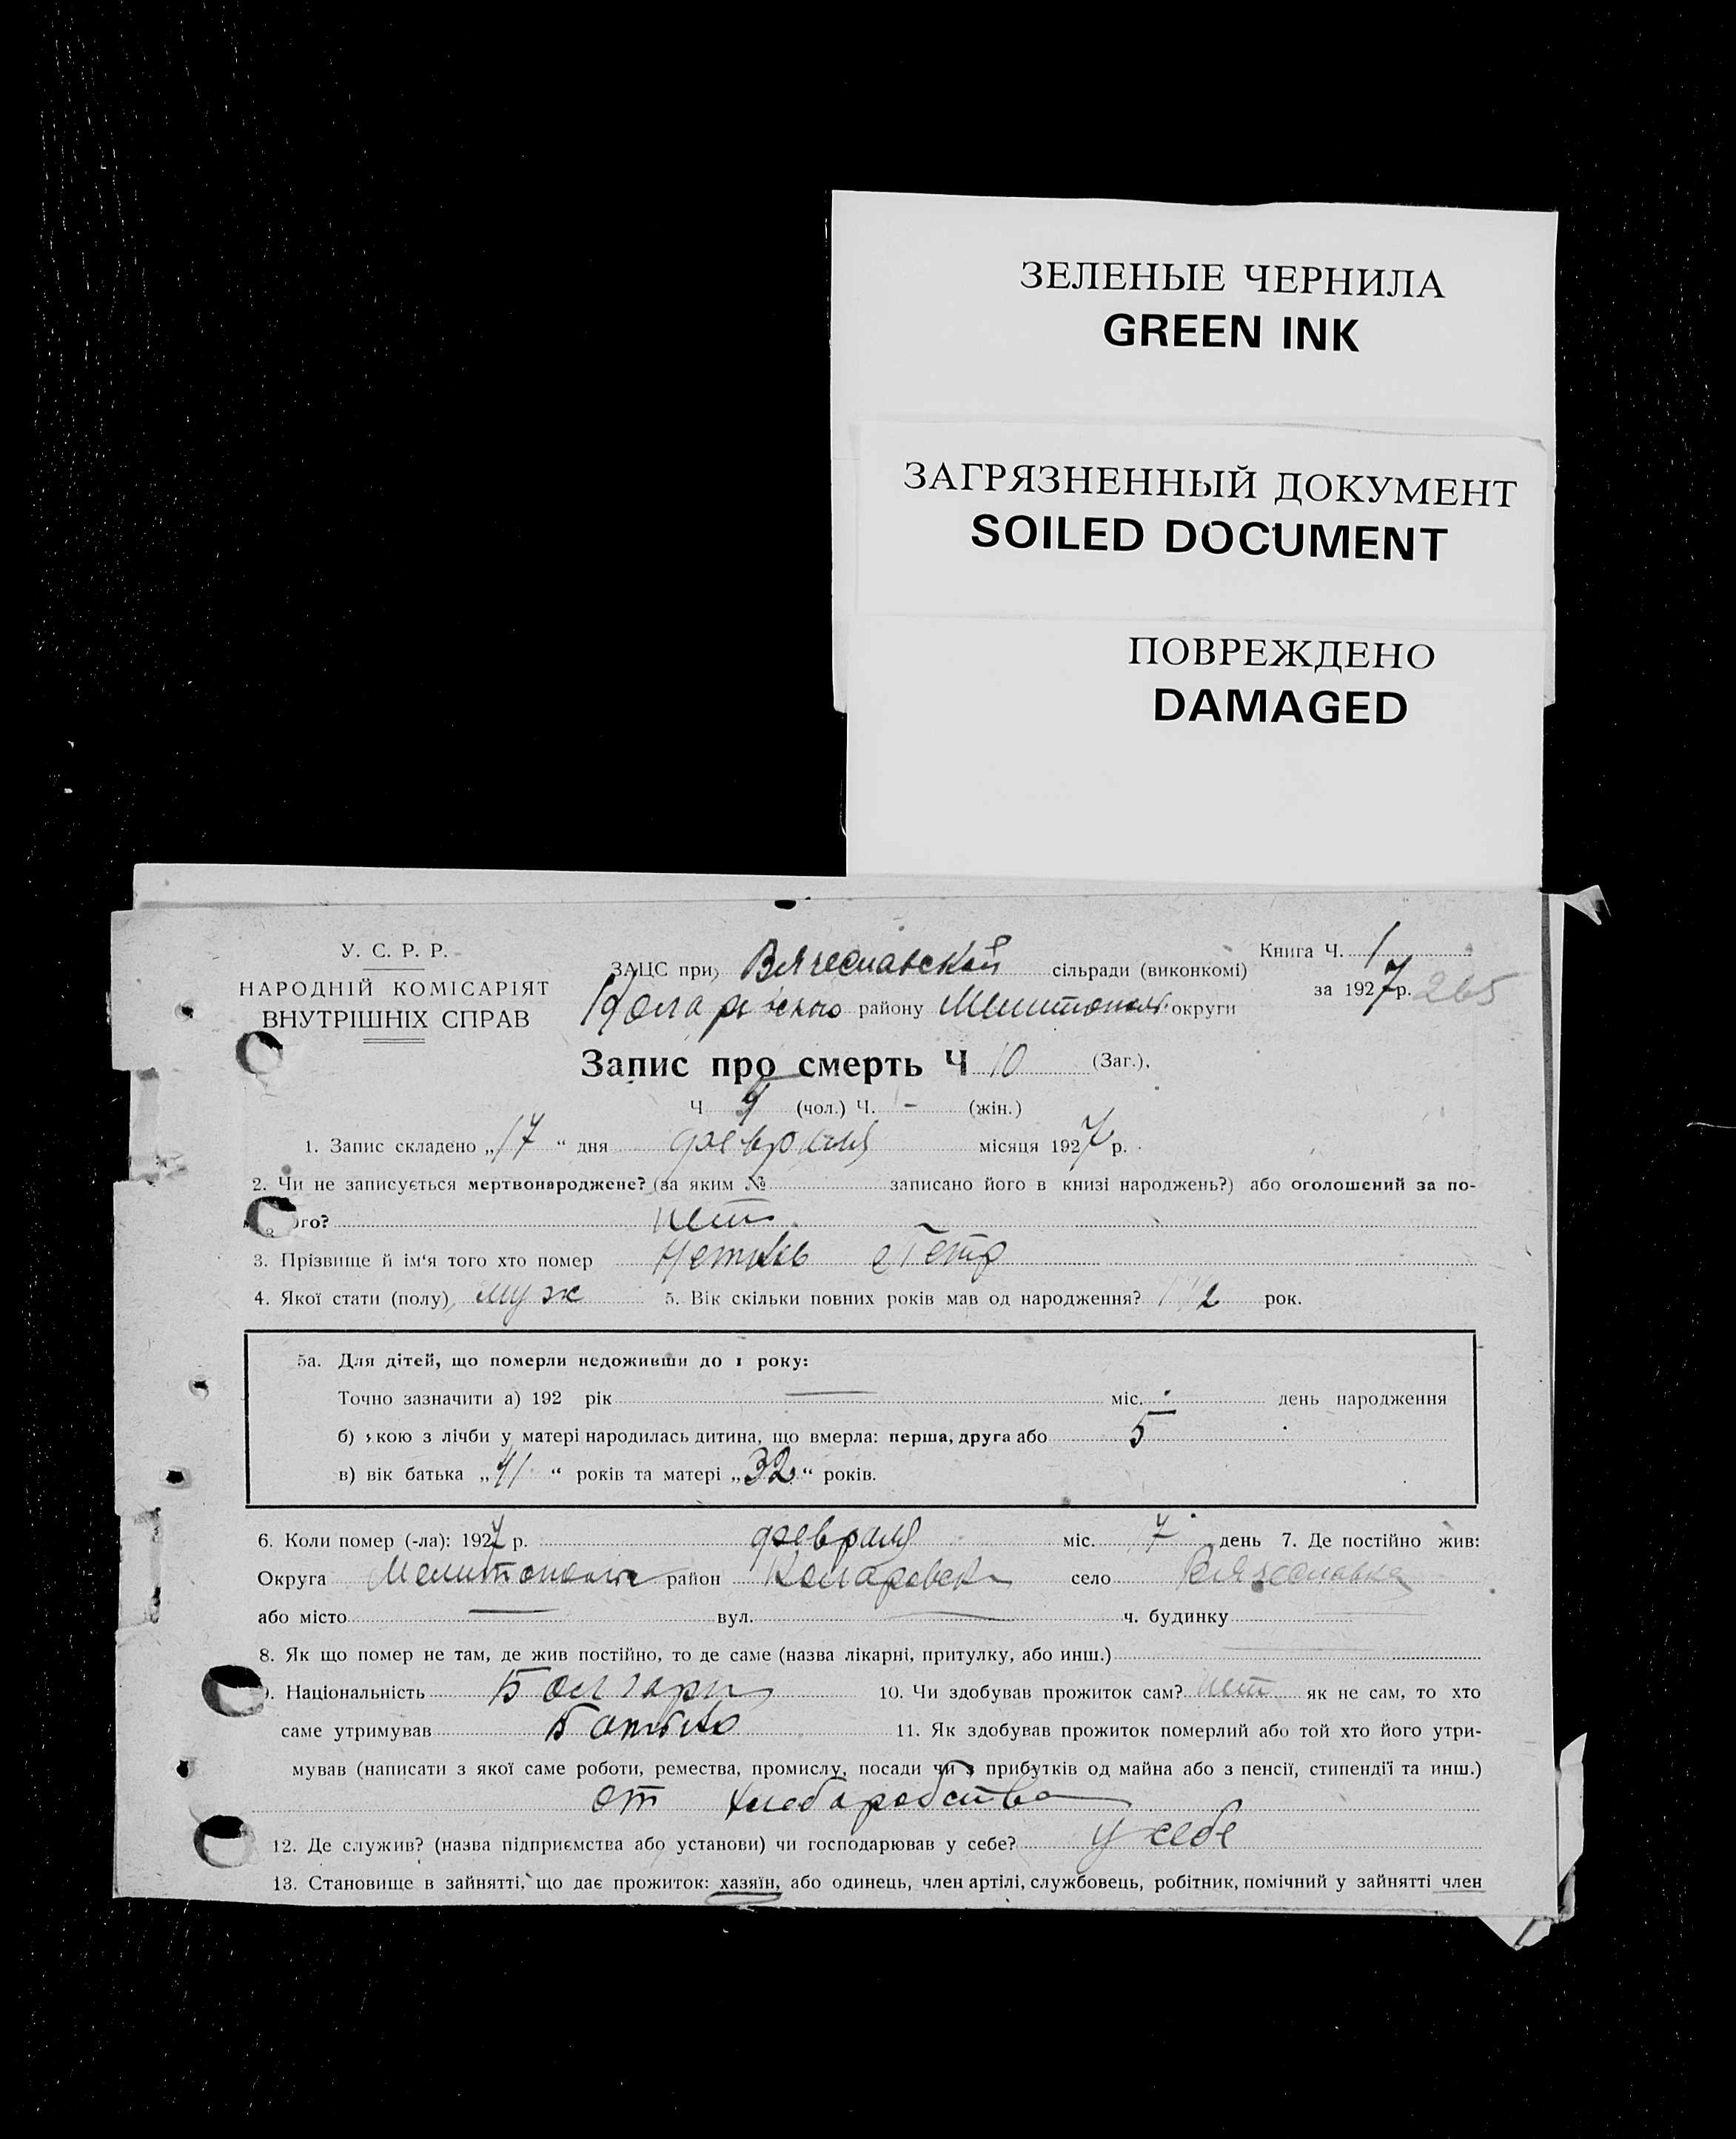 ЗЕЛЕНЫЕ ЧЕРНИЛА
GREEN INK
ЗАГРЯЗНЕННЫЙ ДОКУМЕНТ
SOILED DOCUMENT
ПОВРЕЖДЕНО
DAMAGED
У. С. Р. Р.
НАРОДНІЙ КОМІСАРІЯТ
ВНУТРІШНІХ СПРАВ
Книга Ч. 1
за 1927 р. 265
ЗАЦС при Вячеславской сільради (виконкомі)
району округи
Запис про смерть Ч 10 (Заг.).
Ч 9 (чол.) Ч. - (жін.)
1. Запис складено „17“ дня февраля місяця 1927 р.
2. Чи не записується мертвонароджене? (за яким № записано його в книзі народжень?) або оголошений за по-
ого? нет
3. Прізвище й ім'я того хто помер Петр
4. Якої стати (полу) муж 5. Вік скільки повних років мав од народження? рок.
5а. Для дітей, що померли недоживши до 1 року:
Точно зазначити а) 192 рік — міс. день народження
б) якою з лічби у матері народилась дитина, що вмерла: перша, друга або 5
в) вік батька „41“ років та матері „32“ років.
6. Коли помер (-ла): 1927 р. февраля міс. 7 день 7. Де постійно жив:
Округа район село Вячеславка
або місто — вул. — ч. будинку
8. Як що помер не там, де жив постійно, то де саме (назва лікарні, притулку, або инш.)
9. Національність Болгарин 10. Чи здобував прожиток сам? нет як не сам, то хто
саме утримував Батько 11. Як здобував прожиток померлий або той хто його утри-
мував (написати з якої саме роботи, ремества, промислу, посади чи з прибутків од майна або з пенсії, стипендії та инш.)
от хлеборобства
12. Де служив? (назва підприємства або установи) чи господарював у себе? у себе
13. Становище в зайнятті, що дає прожиток: хазяїн, або одинець, член артілі, службовець, робітник, помічний у зайнятті член